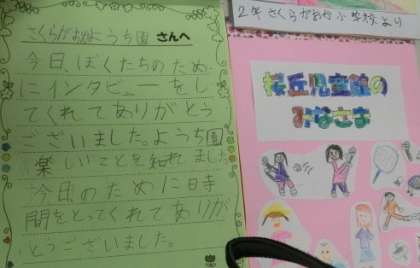 さくらがおかようち園 さんへ
今日、ぼくたちのため
にインタビューをし
てくれてありがとう
ございました。ようち園
楽しいことを知れました
今日のために時
間をとってくれてありが
とうございました。
2年 さくらがおか小学校より
桜丘児童館の
みなさま